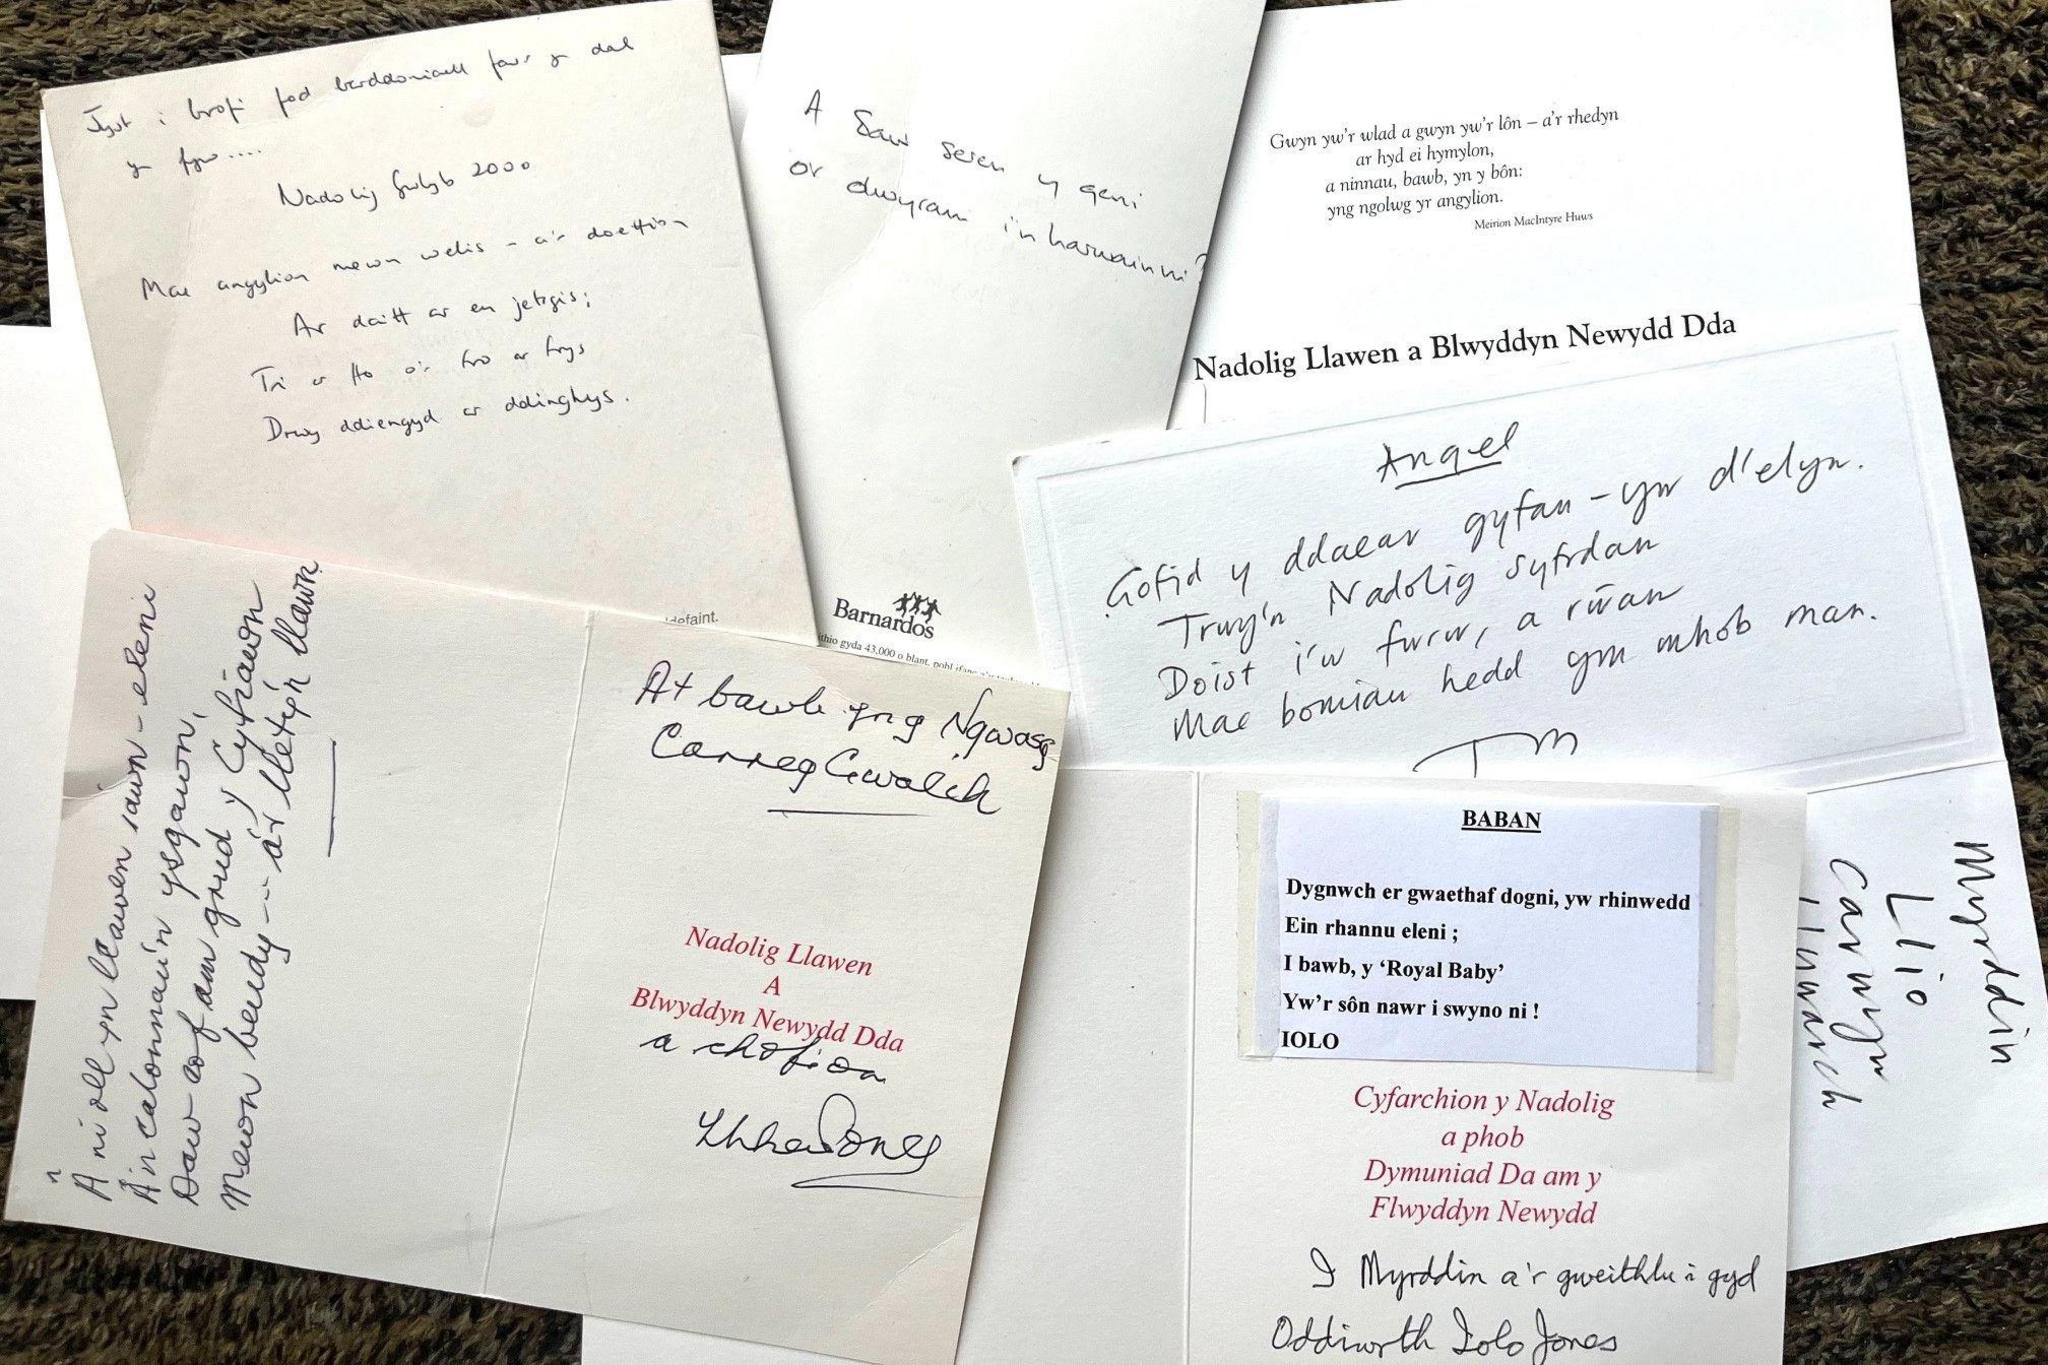 Jyst i brofi fod barddoniaeth fawr yn dal
yn fyw....
Nadolig Gwlyb 2000
Mae angylion mewn welis – a'r doethion
Ar daith ar eu jetsgis;
Tri er Ho o'r fro ar frys
Drwy ddiengyd ar ddinghys.
A ddaw seren y geni
o'r dwyrain i'n harwain ni?
Barnardos
43,000 o blant, pobl ifanc
defaint.
Gwyn yw'r wlad a gwyn yw'r lôn – a'r rhedyn
ar hyd ei hymylon,
a ninnau, bawb, yn y bôn:
yng ngolwg yr angylion.
Meirion MacIntyre Huws
Nadolig Llawen a Blwyddyn Newydd Dda
Angel
Gofid y ddaear gyfan – yw d'elyn.
Trwy'n Nadolig syfrdan
Doist i'w fwrw, a rŵan
Mae bomiau hedd ym mhob man.
TM
Myrddin
Llio
Carwyn
Llywarch
A ni oll yn llawen iawn – eleni
A'n calonnau'n ysgawn,
Daw cof am grud y Cyfiawn
Mewn beudy – a'r lletŷ'n llawn.
At bawb yng Ngwasg
Carreg Gwalch
Nadolig Llawen
A
Blwyddyn Newydd Dda
a chofion
Jones
BABAN
Dygnwch er gwaethaf dogni, yw rhinwedd
Ein rhannu eleni ;
I bawb, y ‘Royal Baby’
Yw'r sôn nawr i swyno ni !
IOLO
Cyfarchion y Nadolig
a phob
Dymuniad Da am y
Flwyddyn Newydd
I Myrddin a'r gweithlu i gyd
Oddiwrth Iolo Jones